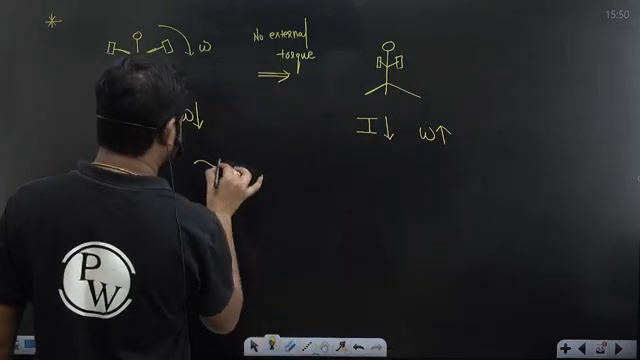 15:50
*
ω
No external
torque
⇒
ω↓
I↓ ω↑
P
W